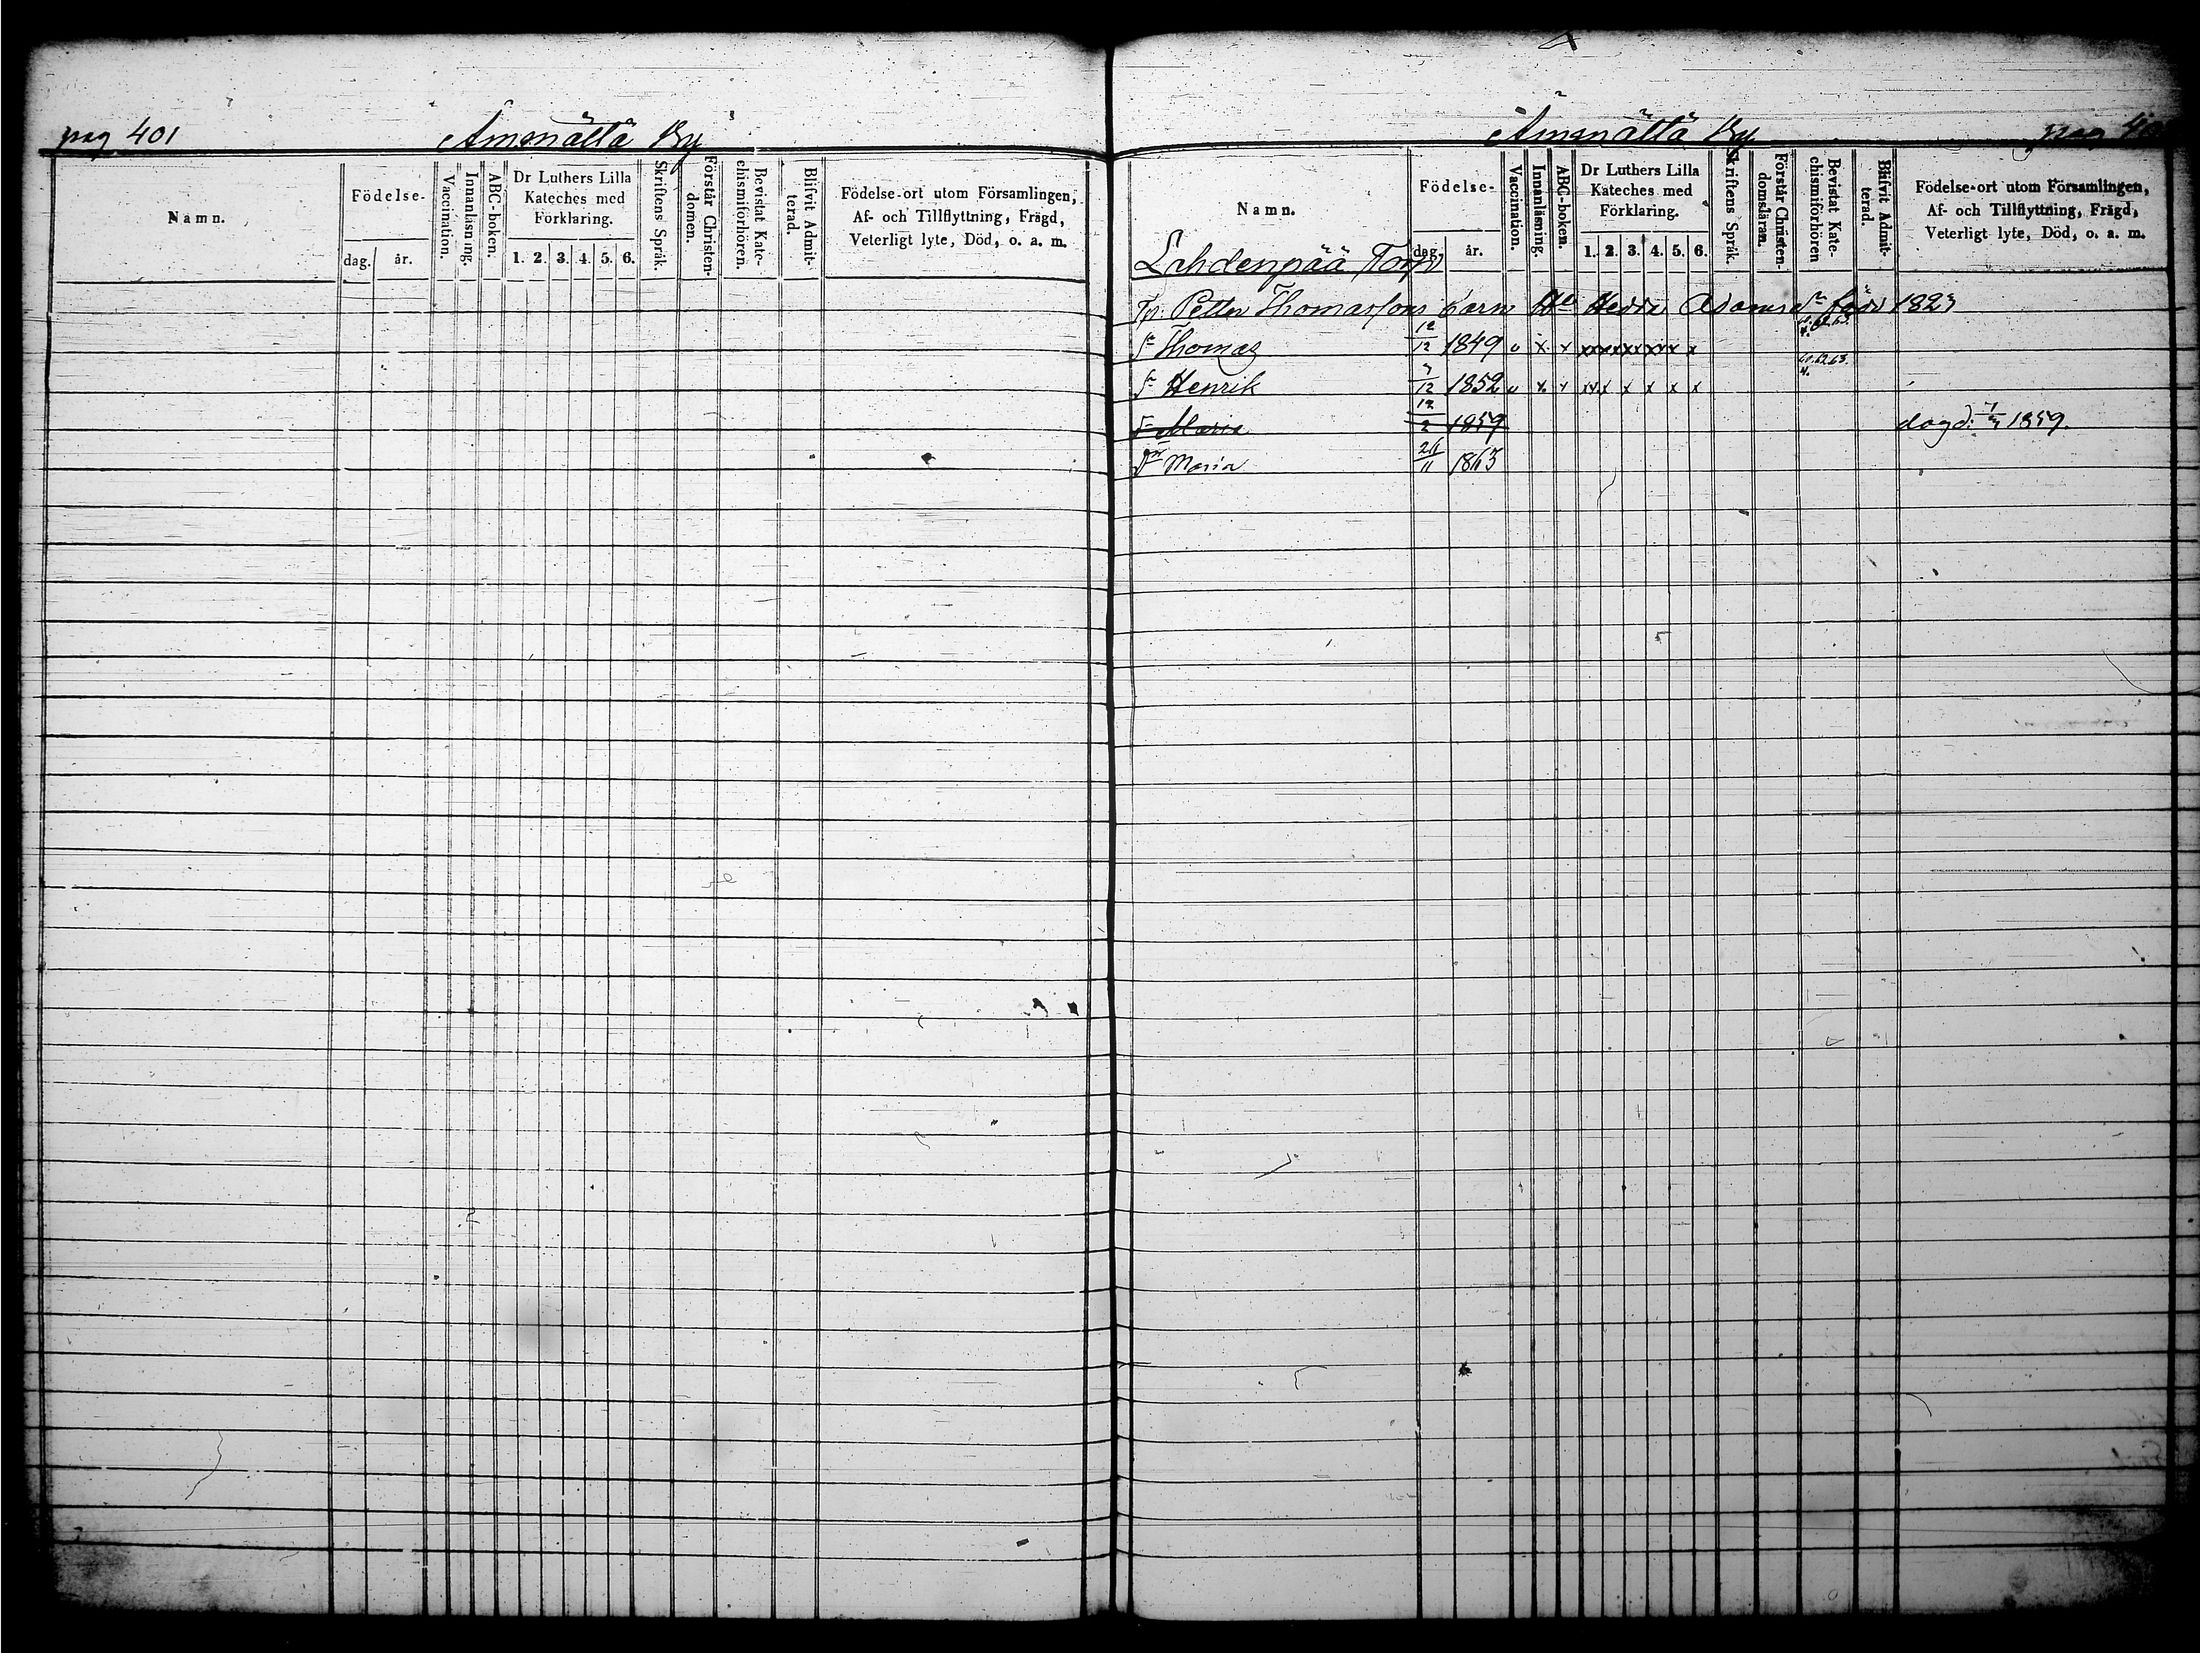 pag 401
Ämmättä By
Namn.
Födelse-
dag. år.
Vaccination.
Innanläsning.
ABC-boken.
Dr Luthers Lilla
Kateches med
Förklaring.
1. 2. 3. 4. 5. 6.
Skriftens Språk.
Förstår Christen-
domen.
Bevistat Kate-
chismiförhören.
Blifvit Admit-
terad.
Födelse-ort utom Församlingen,
Af- och Tillflyttning, Frägd,
Veterligt lyte, Död, o. a. m.
Ämmättä By
pag
Namn.
Födelse-
dag. år.
Vaccination.
Innanläsning.
ABC-boken.
Dr Luthers Lilla
Kateches med
Förklaring.
1. 2. 3. 4. 5. 6.
Skriftens Språk.
Förstår Christen-
domsläran.
Bevistat Kate-
chismiförhören
Blifvit Admit-
terad.
Födelse-ort utom Församlingen,
Af- och Tillflyttning, Frägd,
Veterligt lyte, Död, o. a. m.
Lahdenpää Torp
Tp. Petter Thomassons barn Hedda Adams dr född 1823
Sn Thomas 12/12 1849 v x x xxxxxxxx x
Sn Henrik 7/12 1852 v x x xxx x x x x
Dr Maria 12/2 1859 död: 1859.
Dr Maria 26/11 1863